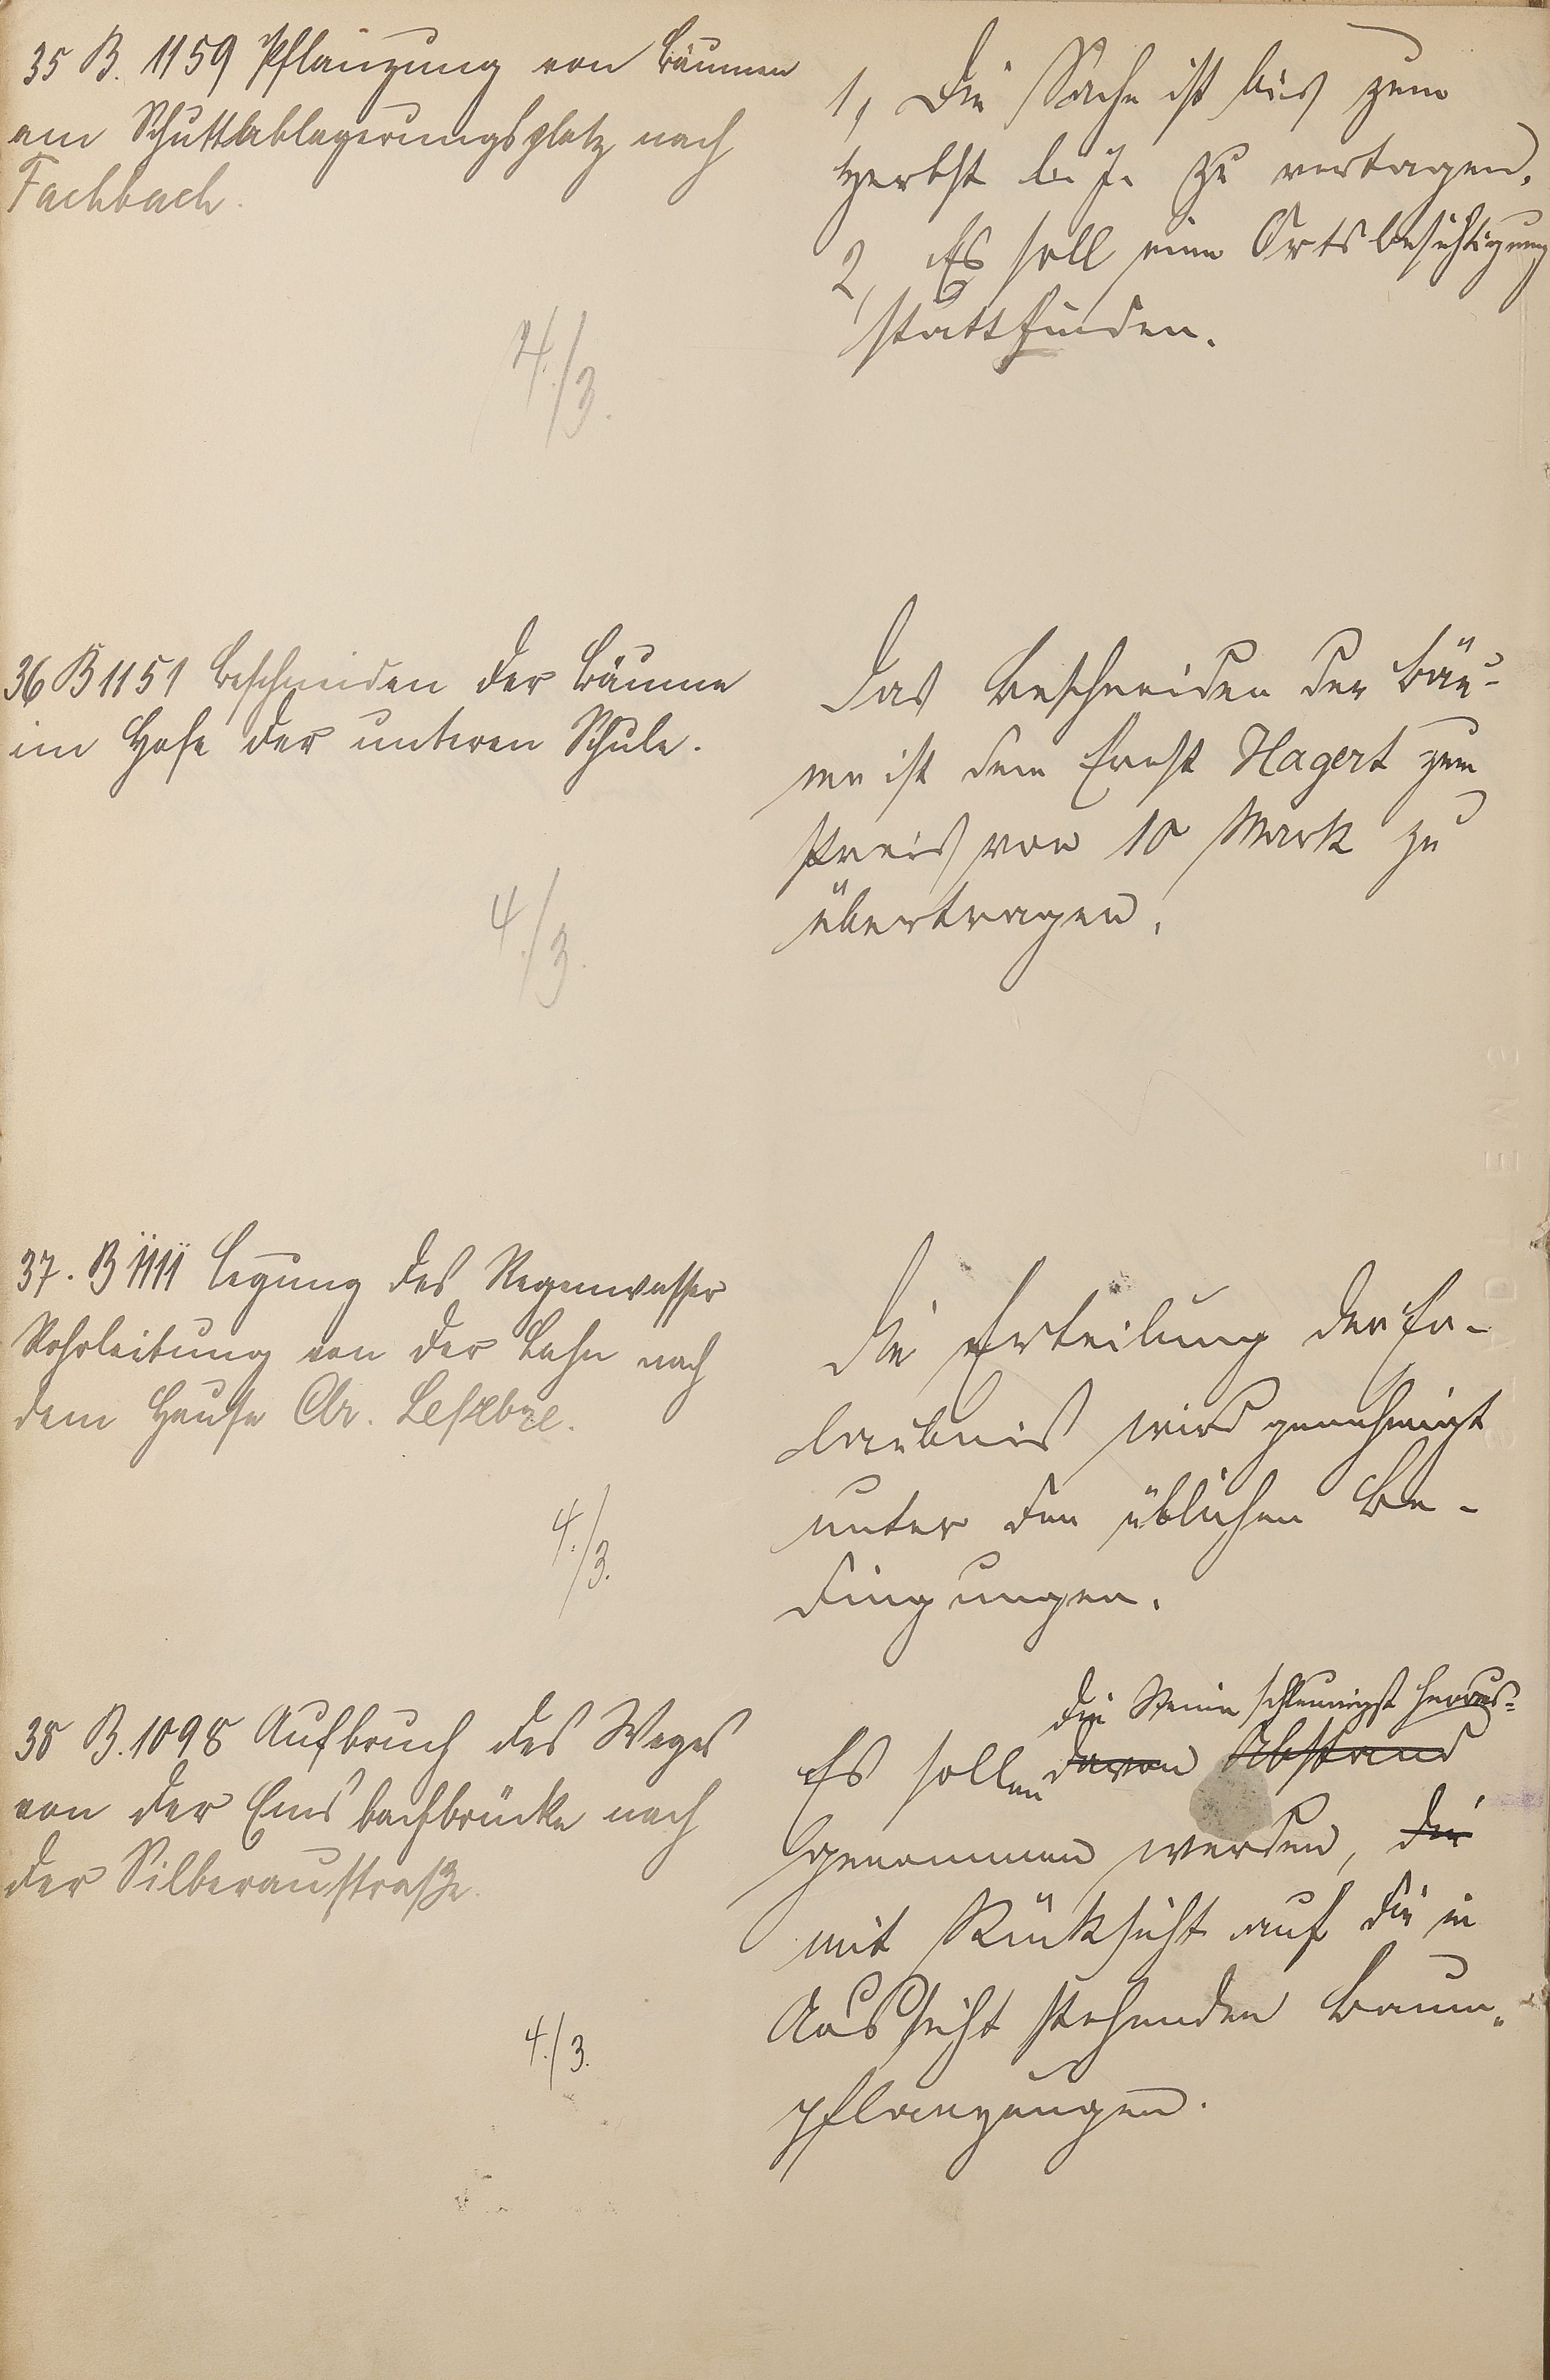 35 B. 1159 Pflanzung von Bäumen
am Schuttablagerungsplatz nach
Fachbach.
4./3.
1, Die Sache ist bis zum
Herbst l. J. zu vertagen.
2, Es soll eine Ortsbesichtigung
stattfinden.
36 B 1151 Beschneiden der Bäume
im Hofe der unteren Schule.
4./3.
Das Beschneiden der Bäu-
me ist dem Ernst Hagert zum
Preis von 10 Mark zu
übertragen.
37. B 1111 Legung des Regenwasser
Rohrleitung von der Lahn nach
dem Hause Chr.
4./3.
Die Erteilung der Er-
laubnis wird genehmigt
unter den üblichen Be-
dingungen.
38 B. 1098 Aufbruch des Weges
von der Emsbachbrücke nach
der Silberaustraße.
4./3.
die Steine schleunigst heraus-
Es sollen davon Abstand
genommen werden, die
mit Rücksicht auf die in
Aussicht stehenden Baum-
pflanzungen.